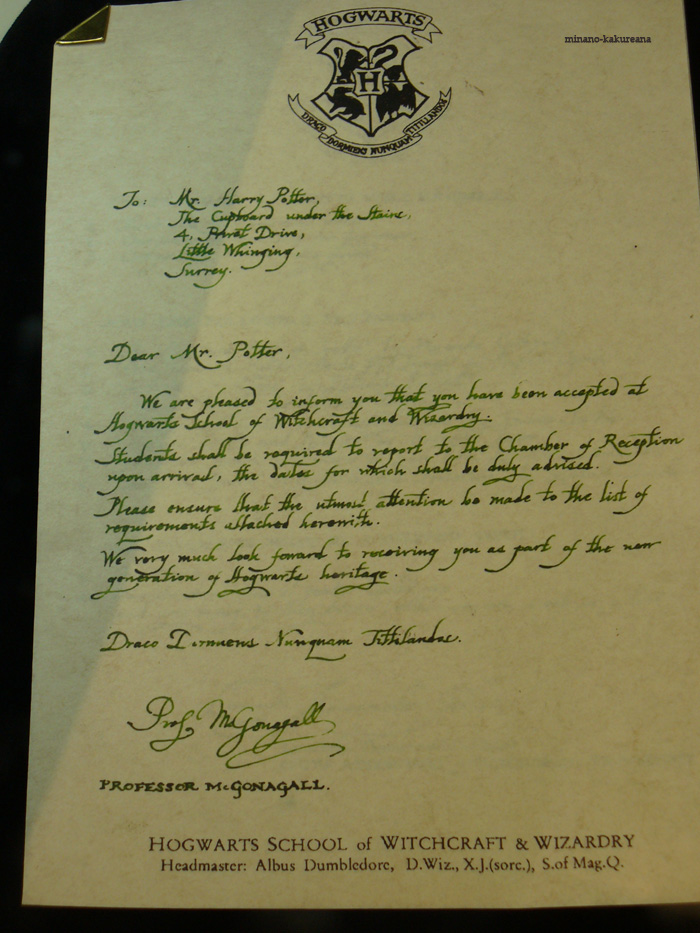 HOGWARTS
minano-kakureana
H
DRACO DORMIENS NUNQUAM TITILLANDUS
To: Mr. Harry Potter,
The Cupboard under the Stairs,
4, Privet Drive,
Little Whinging,
Surrey.
Dear Mr. Potter,
We are pleased to inform you that you have been accepted at
Hogwarts School of Witchcraft and Wizardry.
Students shall be required to report to the Chamber of Reception
upon arrival, the dates for which shall be duly advised.
Please ensure that the utmost attention be made to the list of
requirements attached herewith.
We very much look foward to receiving you as part of the new
generation of Hogwarts heritage.
Draco Nunquam
Prof. McGonagall
PROFESSOR McGONAGALL.
HOGWARTS SCHOOL of WITCHCRAFT & WIZARDRY
Headmaster: Albus Dumbledore, D.Wiz., X.J.(sorc.), S.of Mag.Q.